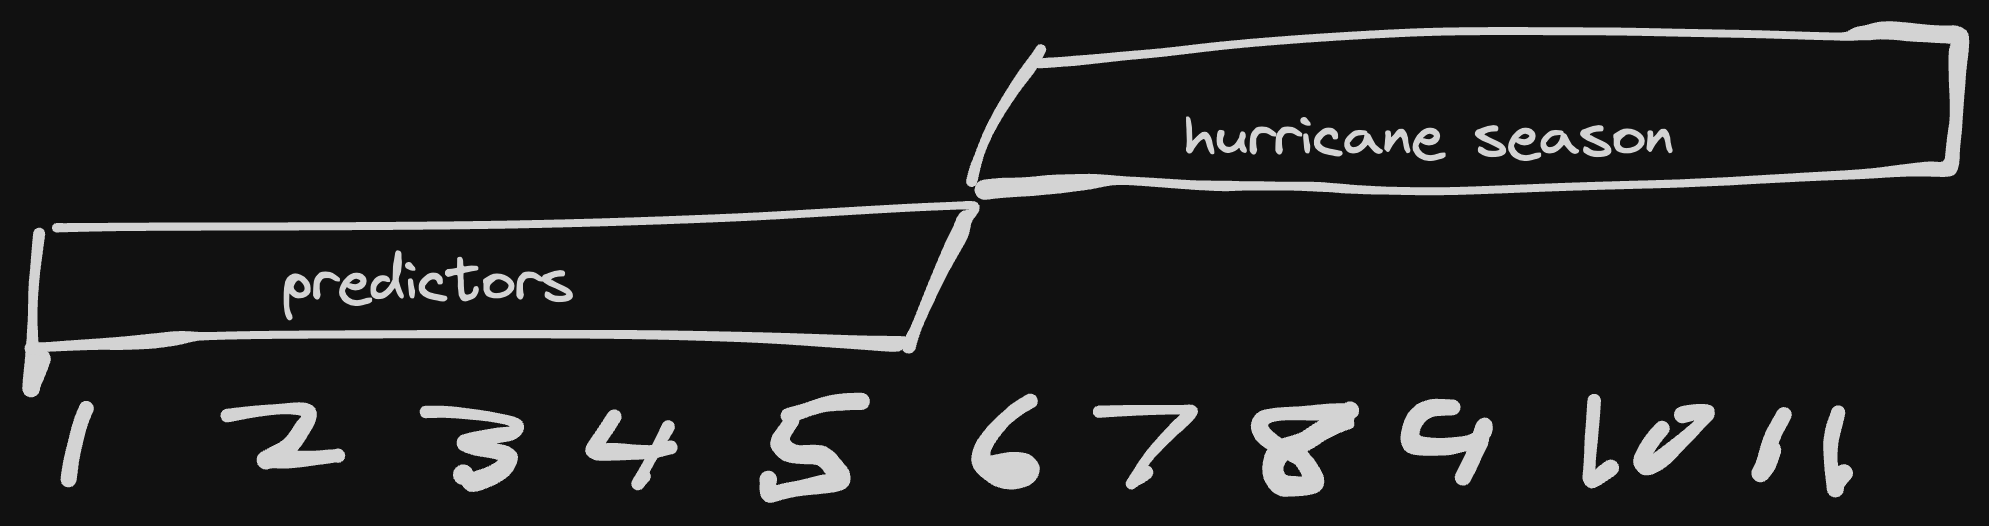 hurricane season
predictors
1 2 3 4 5 6 7 8 9 10 11